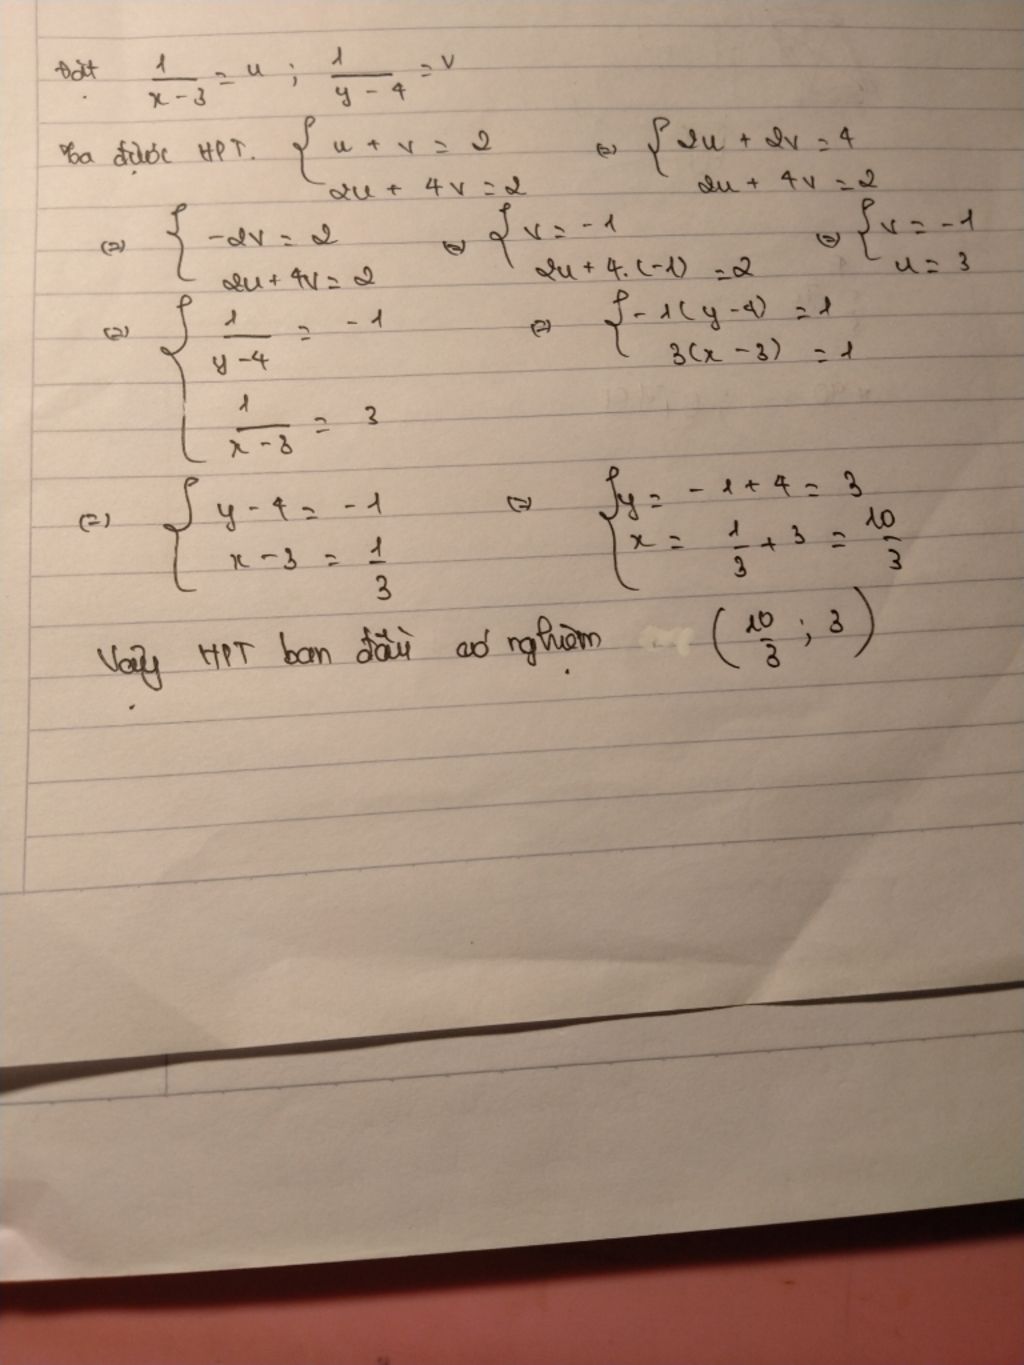 Đặt 1/(x-3) = u ; 1/(y-4) = v
Ta được HPT. { u + v = 2 ; 2u + 4v = 2 (=) { 2u + 2v = 4 ; 2u + 4v = 2
(=) { -2v = 2 ; 2u + 4v = 2 (=) { v = -1 ; 2u + 4.(-1) = 2 (=) { v = -1 ; u = 3
(=) { 1/(y-4) = -1 ; 1/(x-3) = 3 (=) { -1(y-4) = 1 ; 3(x-3) = 1
(=) { y - 4 = -1 ; x - 3 = 1/3 (=) { y = -1 + 4 = 3 ; x = 1/3 + 3 = 10/3
Vậy HPT ban đầu có nghiệm (10/3 ; 3)